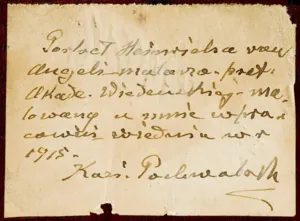 Portret Heinricha van
Angeli - malarza - prof.
Akade. Wiedeńskiej - ma-
lowany u mnie w pra-
cowni Wiedniu w r
1915.
Kazi. Pochwalski